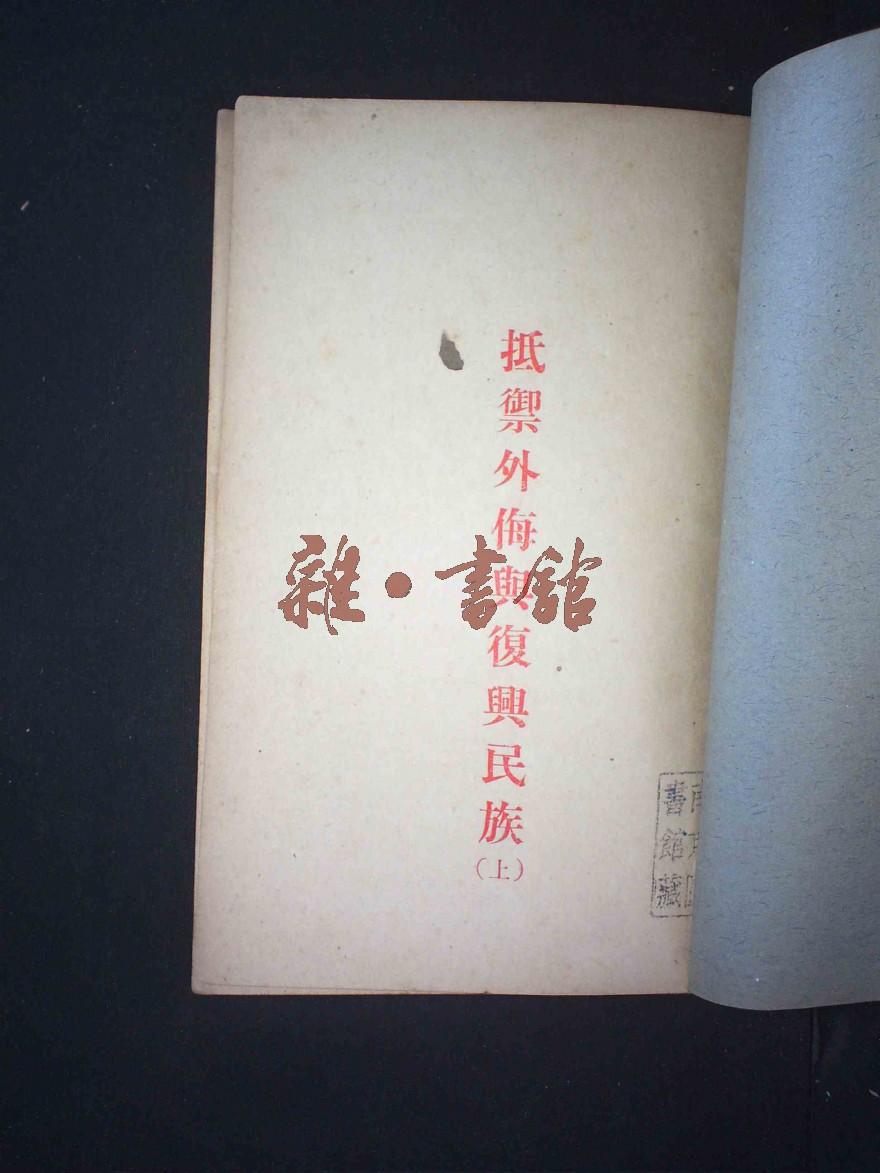 抵禦外侮與復興民族
(上)
雜·書館
書館藏